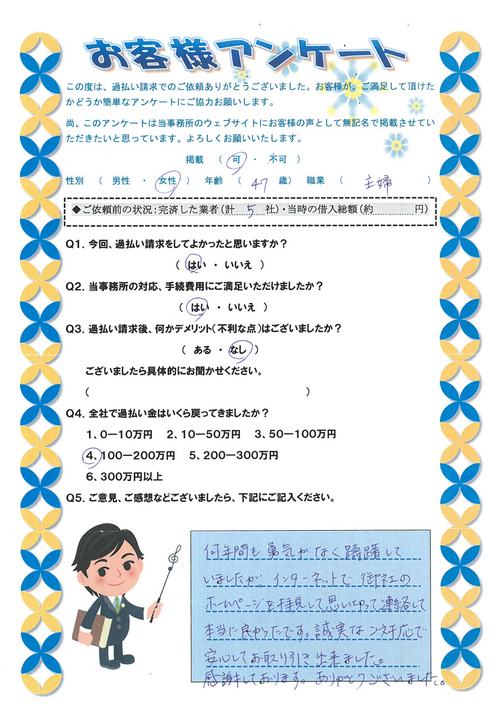 お客様アンケート
この度は、過払い請求でのご依頼ありがとうございました。お客様が、ご満足して頂けた
かどうか簡単なアンケートにご協力お願いします。
尚、このアンケートは当事務所のウェブサイトにお客様の声として無記名で掲載させてい
ただきたいと思っています。よろしくお願いいたします。
掲載 （ 可 ・ 不可 ）
性別 （ 男性 ・ 女性 ） 年齢 （ 47 歳） 職業 （ 主婦 ）
◆ご依頼前の状況：完済した業者（計 5 社）・当時の借入総額（約 円）
Q1. 今回、過払い請求をしてよかったと思いますか？
（ はい ・ いいえ ）
Q2. 当事務所の対応、手続費用にご満足いただけましたか？
（ はい ・ いいえ ）
Q3. 過払い請求後、何かデメリット（不利な点）はございましたか？
（ ある ・ なし ）
ございましたら具体的にお聞かせください。
（ ）
Q4. 全社で過払い金はいくら戻ってきましたか？
1、0－10万円 2、10－50万円 3、50－100万円
4、100－200万円 5、200－300万円
6、300万円以上
Q5. ご意見、ご感想などございましたら、下記にご記入ください。
何年間も勇気がなく躊躇して
いましたが インターネットで 御社の
ホームページを拝見して思いきって連絡して
本当に良かったです。誠実なご対応で
安心してお取り引き出来ました。
感謝しております。ありがとうございました。